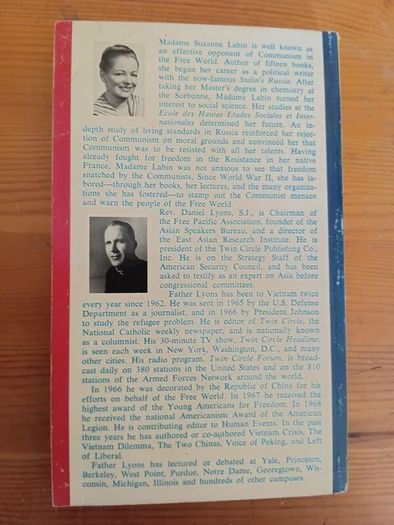 Madame Suzanne Labin is well known as
an effective opponent of Communism in
the Free World. Author of fifteen books,
she began her career as a political writer
with the now-famous Stalin's Russia. After
taking her Master's degree in chemistry at
the Sorbonne, Madame Labin turned her
interest to social science. Her studies at the
Ecole des Hautes Etudes Sociales et Inter-
nationales determined her future. An in-
depth study of living standards in Russia reinforced her rejec-
tion of Communism on moral grounds and convinced her that
Communism was to be resisted with all her talents. Having
already fought for freedom in the Resistance in her native
France, Madame Labin was not anxious to see that freedom
snatched by the Communists. Since World War II, she has la-
bored—through her books, her lectures, and the many organiza-
tions she has fostered—to stamp out the Communist menace
and warn the people of the Free World.
Rev. Daniel Lyons, S.J., is Chairman of
the Free Pacific Association, founder of the
Asian Speakers Bureau, and a director of
the East Asian Research Institute. He is
president of the Twin Circle Publishing Co.,
Inc. He is on the Strategy Staff of the
American Security Council, and has been
asked to testify as an expert on Asia before
congressional committees.
Father Lyons has been to Vietnam twice
every year since 1962. He was sent in 1965 by the U.S. Defense
Department as a journalist, and in 1966 by President Johnson
to study the refugee problem. He is editor of Twin Circle, the
National Catholic weekly newspaper, and is nationally known
as a columnist. His 30-minute TV show, Twin Circle Headline,
is seen each week in New York, Washington, D.C., and many
other cities. His radio program, Twin Circle Forum, is broad-
cast daily on 380 stations in the United States and on the 810
stations of the Armed Forces Network around the world.
In 1966 he was decorated by the Republic of China for his
efforts on behalf of the Free World. In 1967 he received the
highest award of the Young Americans for Freedom. In 1968
he received the national Americanism Award of the American
Legion. He is contributing editor to Human Events. In the past
three years he has authored or co-authored Vietnam Crisis, The
Vietnam Dilemma, The Two Chinas, Voice of Peking, and Left
of Liberal.
Father Lyons has lectured or debated at Yale, Princeton,
Berkeley, West Point, Purdue, Notre Dame, Georgetown, Wis-
consin, Michigan, Illinois and hundreds of other campuses.